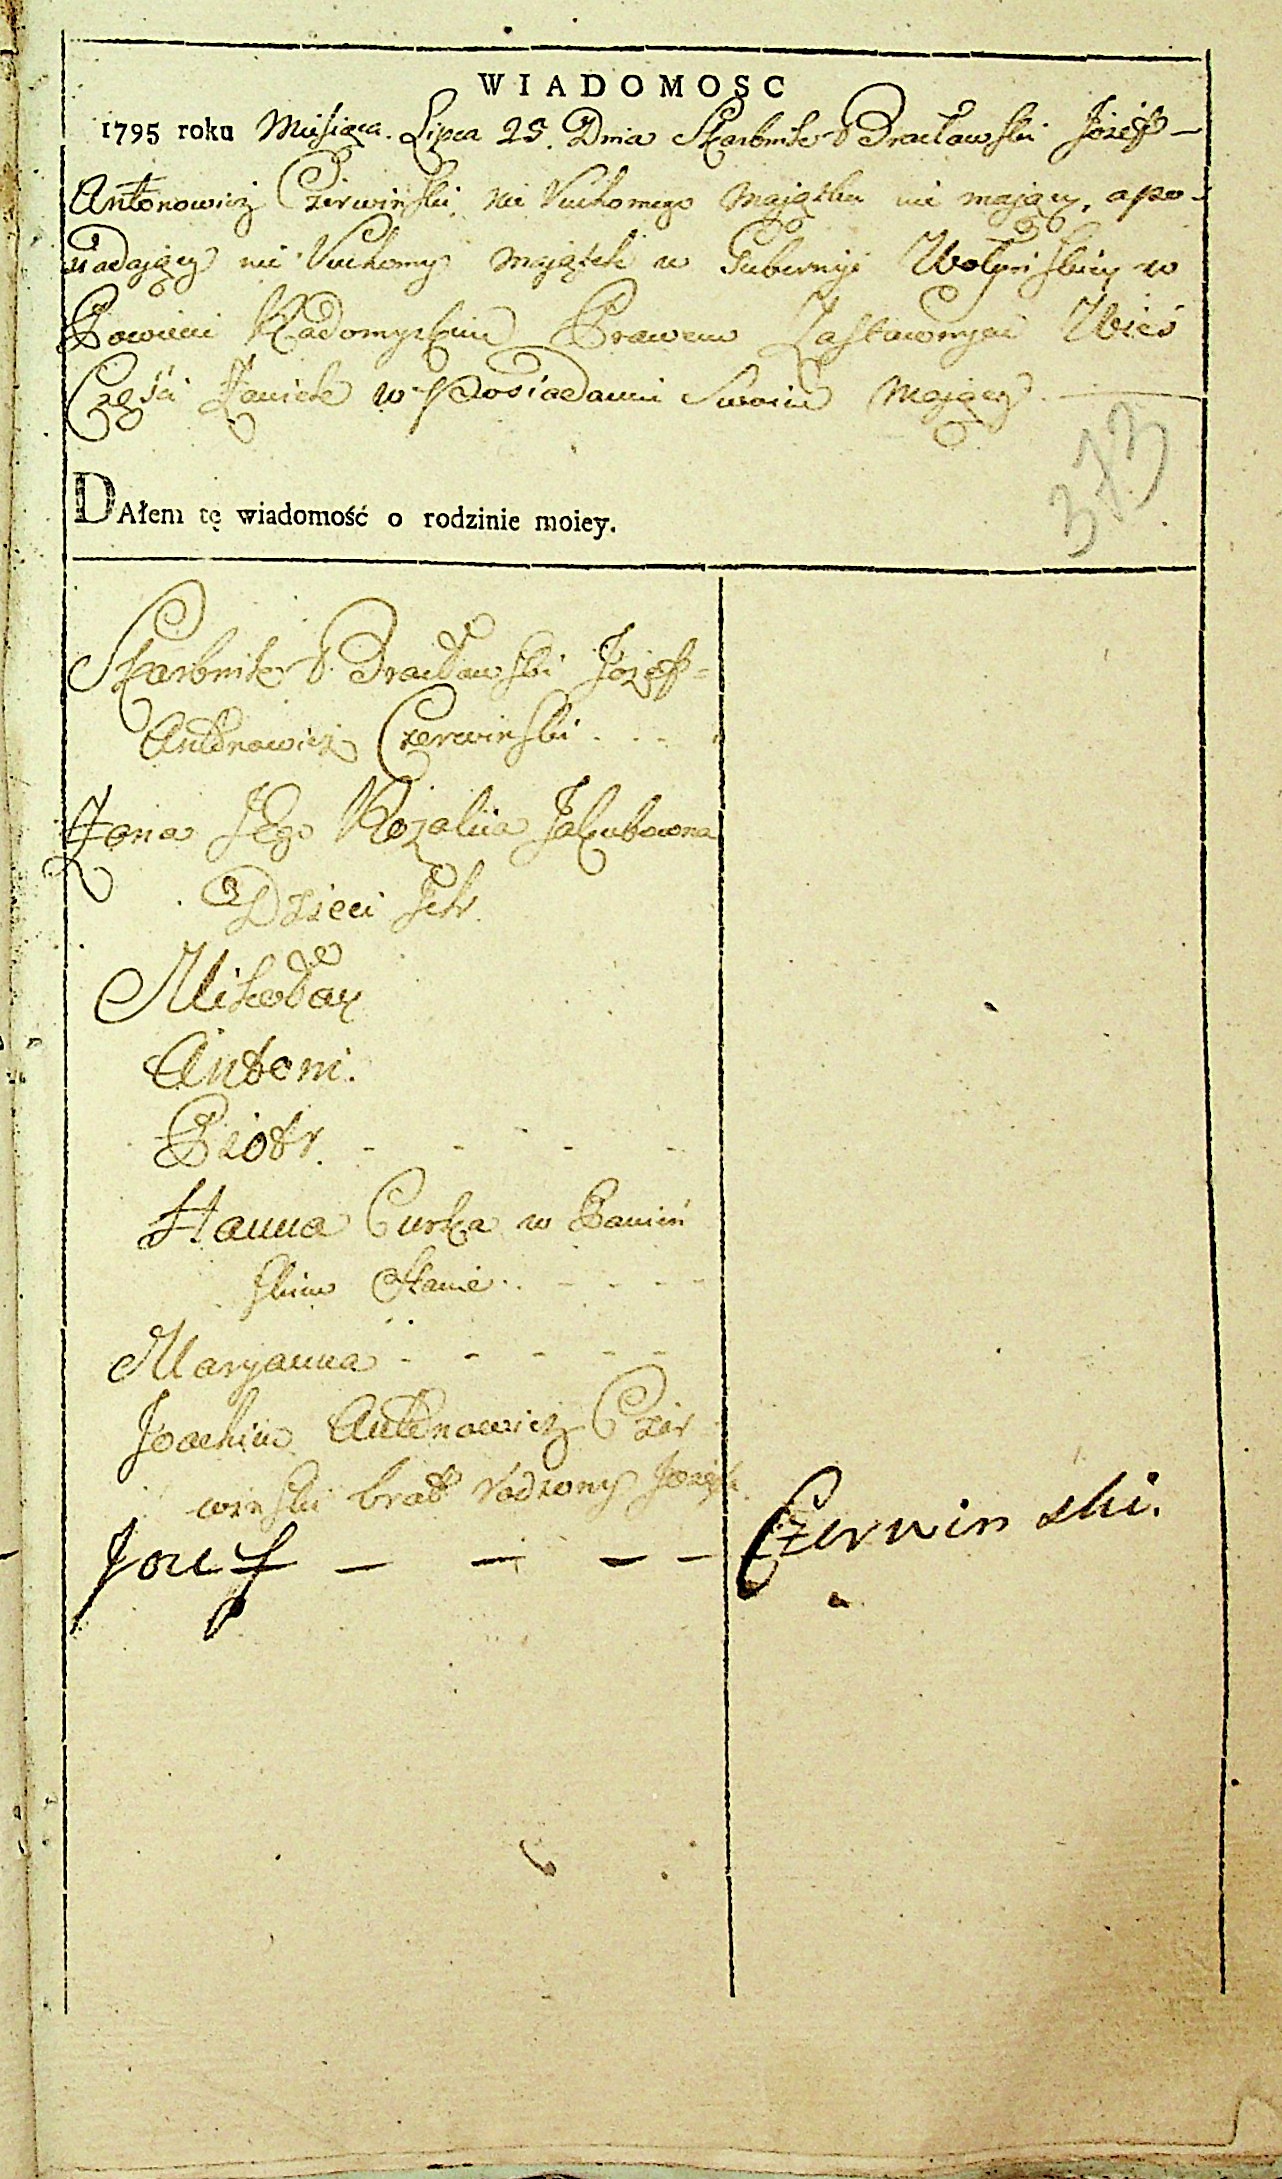 WIADOMOSC
1795 roku Miesiąca. Lipca 25. Dnia Skarbnik Bracławski Józef
Antonowicz Czerwiński nie Ruchomego Majątku nie mający, a po-
siadający nie Ruchomy Majątek w Gubernyi Wołyńskiey w
Powieci Radomyskim Prawem Zastawnym Wieś
Części w Posiadaniu Swoim Mający.
373
DAłem tę wiadomość o rodzinie moiey.
Skarbnik Bracławski Józef
Antonowicz Czerwinski
Żona JEgo Rozalia Jakubowna
Dzieci Ich
Mikołay
Antoni.
Piotr.
Hanna Curka w Panień
skim Stanie
Maryanna
Joachim Antonowicz Czer
winski brat rodzony Józefa
Jozef Czerwinski.